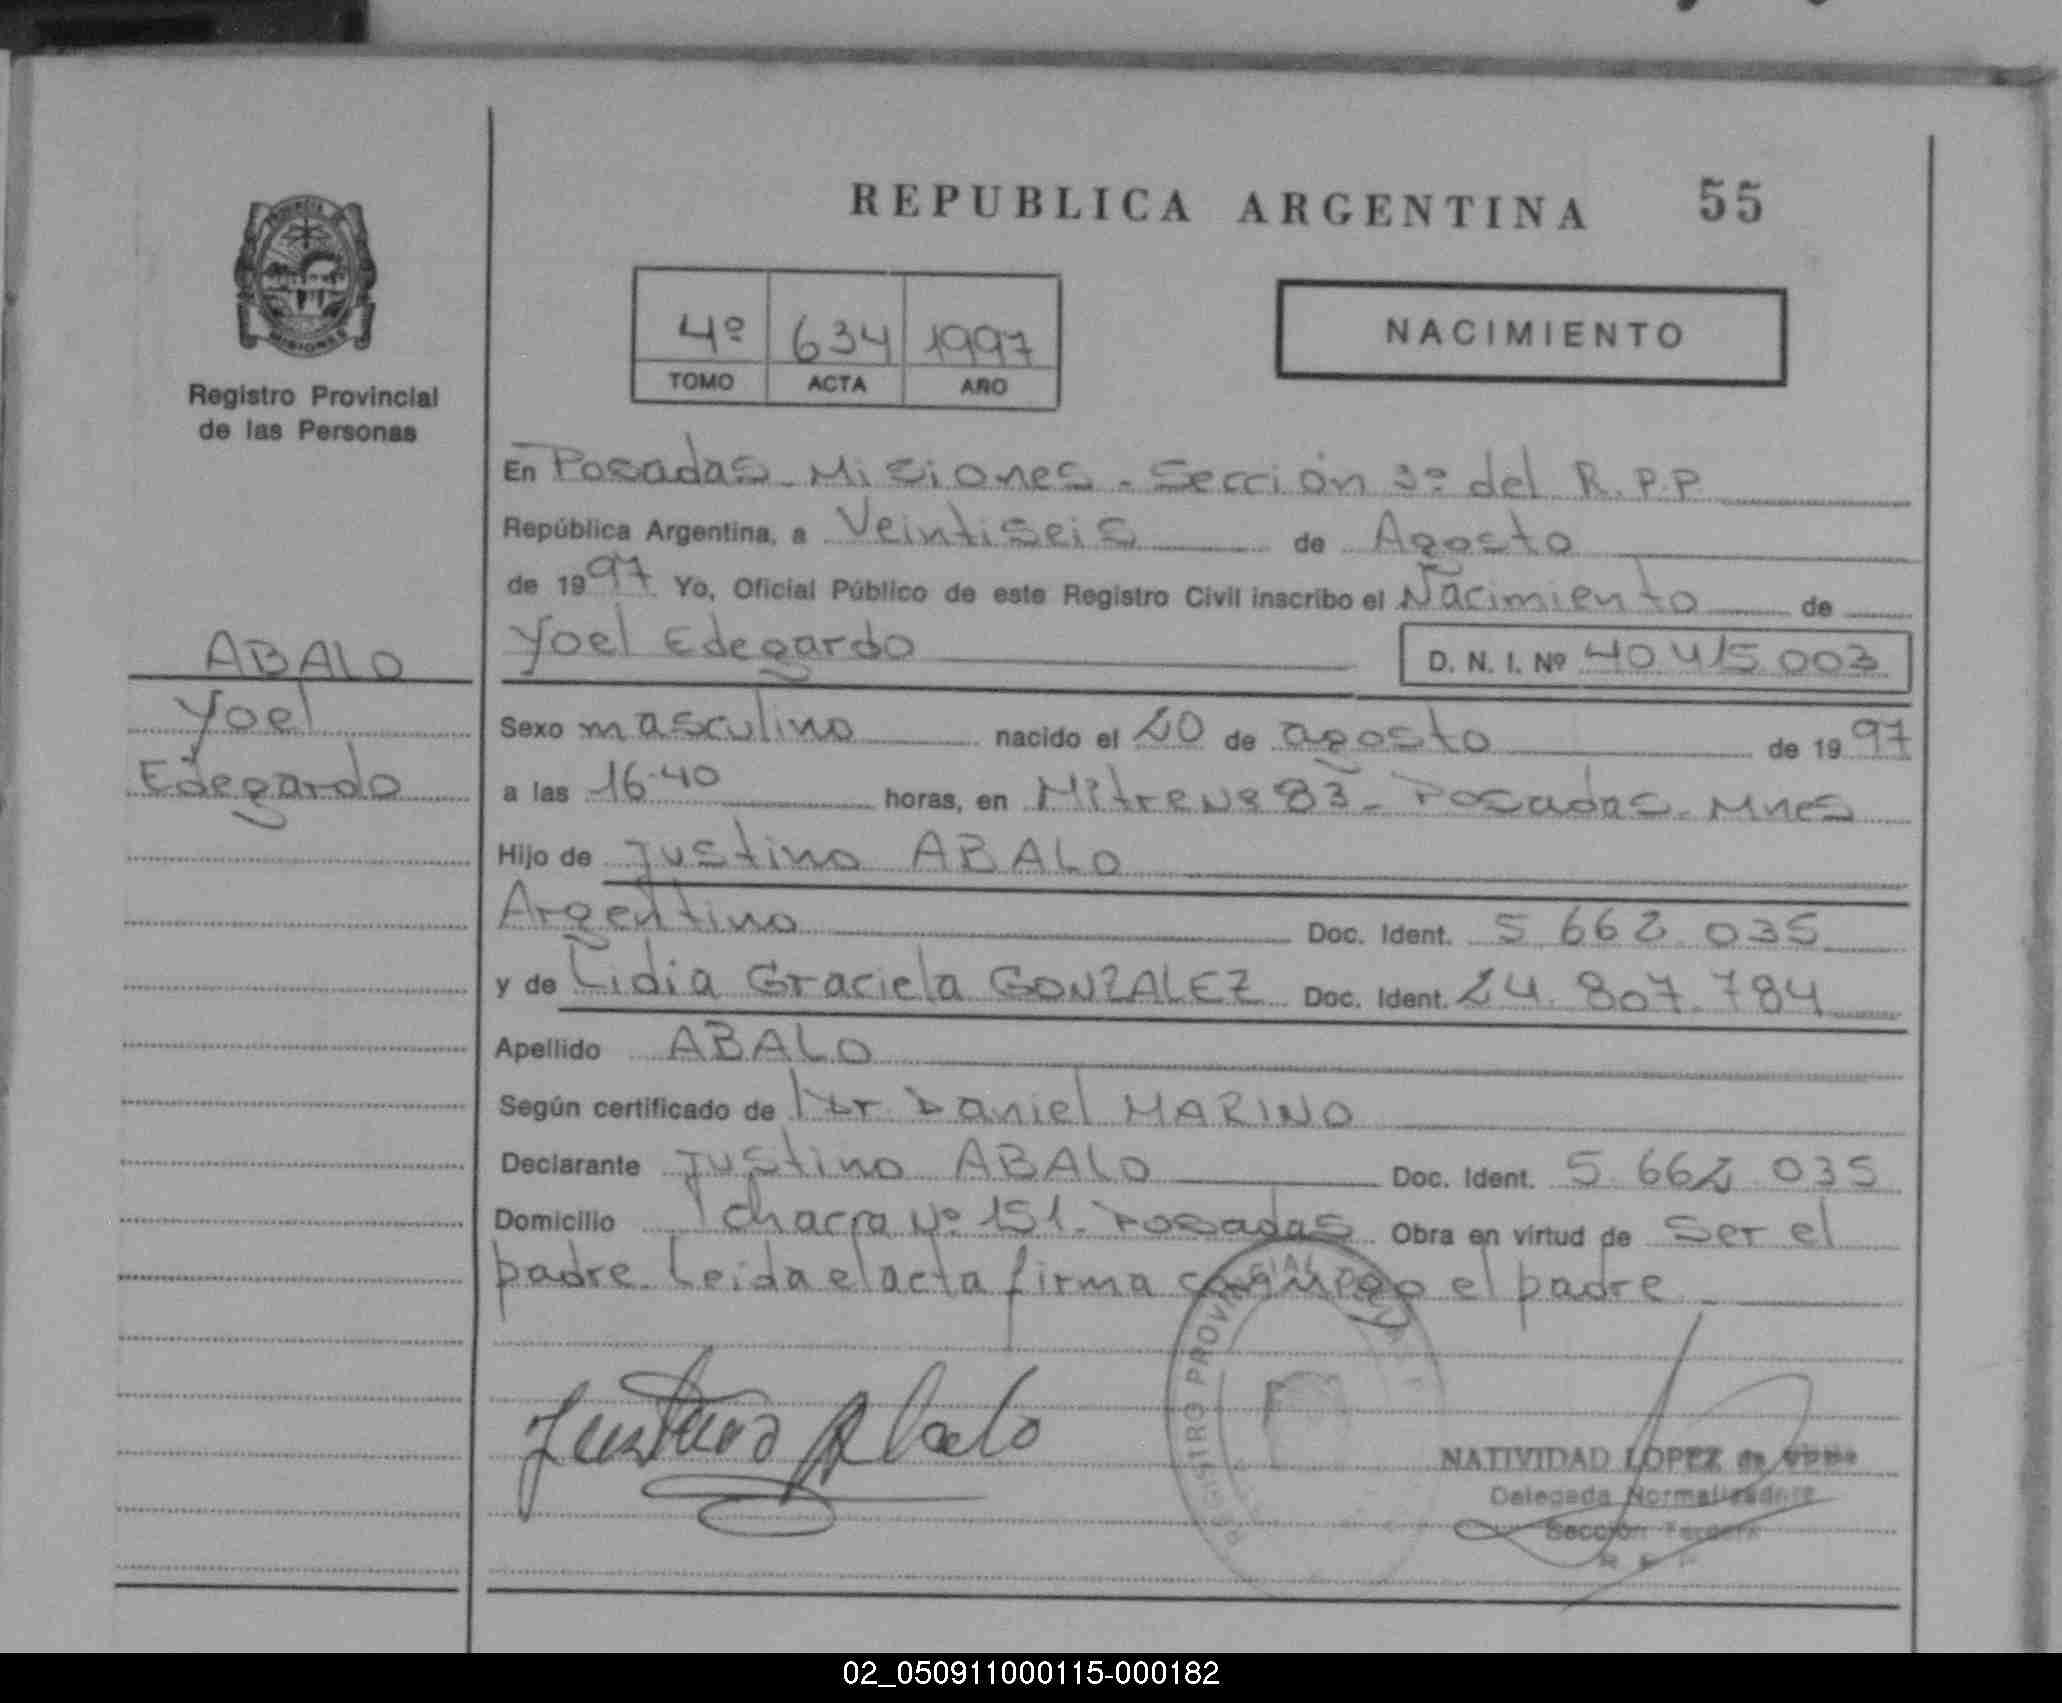 REPUBLICA ARGENTINA 55
PROVINCIA DE
MISIONES
Registro Provincial
de las Personas
4º 634 1997
TOMO ACTA AÑO
NACIMIENTO
En Posadas - Misiones - Sección 3º del R.P.P
República Argentina, a Veintiseis de Agosto
de 1997 Yo, Oficial Público de este Registro Civil inscribo el Nacimiento de
Yoel Edegardo D. N. I. Nº 40415003
ABALO
Yoel
Edegardo
Sexo masculino nacido el 20 de agosto de 1997
a las 16.40 horas, en Mitre Nº 83 - Posadas - Mnes
Hijo de Justino ABALO
Argentino Doc. Ident. 5 662 035
y de Lidia Graciela GONZALEZ Doc. Ident. 24.807.784
Apellido ABALO
Según certificado de Dr. Daniel MARINO
Declarante Justino ABALO Doc. Ident. 5.662.035
Domicilio chacra Nº 151 - Posadas Obra en virtud de ser el
padre. Leida el acta firma conmigo el padre
Justino Abalo
REGISTRO PROVINCIAL
NATIVIDAD LOPEZ de
Delegada Normalizadora
Sección Tercera
02_050911000115-000182